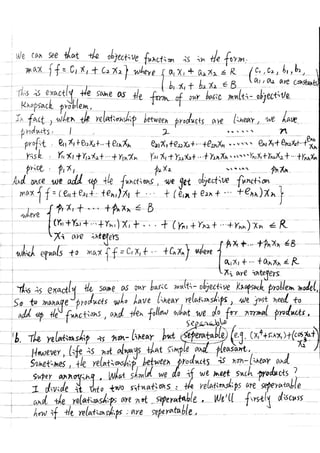 We can see that the objective function is in the form.
max { f = C1 X1 + C2 X2 } where { a1 X1 + a2 X2 ≤ R ( C1, C2, b1, b2,
b1 X1 + b2 X2 ≤ B a1, a2 are constants
This is exactly the same as the form of our basic multi-objective
Knapsack problem.
In fact, when the relationship between products are linear, we have
products: 1 2 ...... n
profit e11X1+e12X2+...+e1nXn e21X1+e22X2+...+e2nXn ...... en1X1+en2X2+...+ennXn
risk r11X1+r12X2+...+r1nXn r21X1+r22X2+...+r2nXn ...... rn1X1+rn2X2+...+rnnXn
price p1X1 p2X2 ...... pnXn
And once we add up the functions, we get objective function
max { f = (e11+e21+...+en1)X1 + ... + (e1n+e2n+...+enn)Xn }
where { p1X1 + ... + pnXn ≤ B
(r11+r21+...+rn1)X1 + ... + (r1n+r2n+...+rnn)Xn ≤ R
Xi are integers
which equals to max { f = C1X1 + ... + CnXn } where { p1X1 + ... + pnXn ≤ B
a1X1 + ... + anXn ≤ R
Xi are integers
This is exactly the same as our basic multi-objective Knapsack problem model,
So to manage products who have linear relationships, we just need to
add up the functions, and then follow what we do for normal products.
separable
b. The relationship is non-linear but (seperatable) (e.g.
However, life is not always that simple and pleasant.
Sometimes, the relationship between products is non-linear and
super annoying. What should we do if we meet such products?
I divide it into two situations: the relationships are seperatable
and the relationships are not seperatable. We'll firsely discuss
how if the relationships are seperatable.